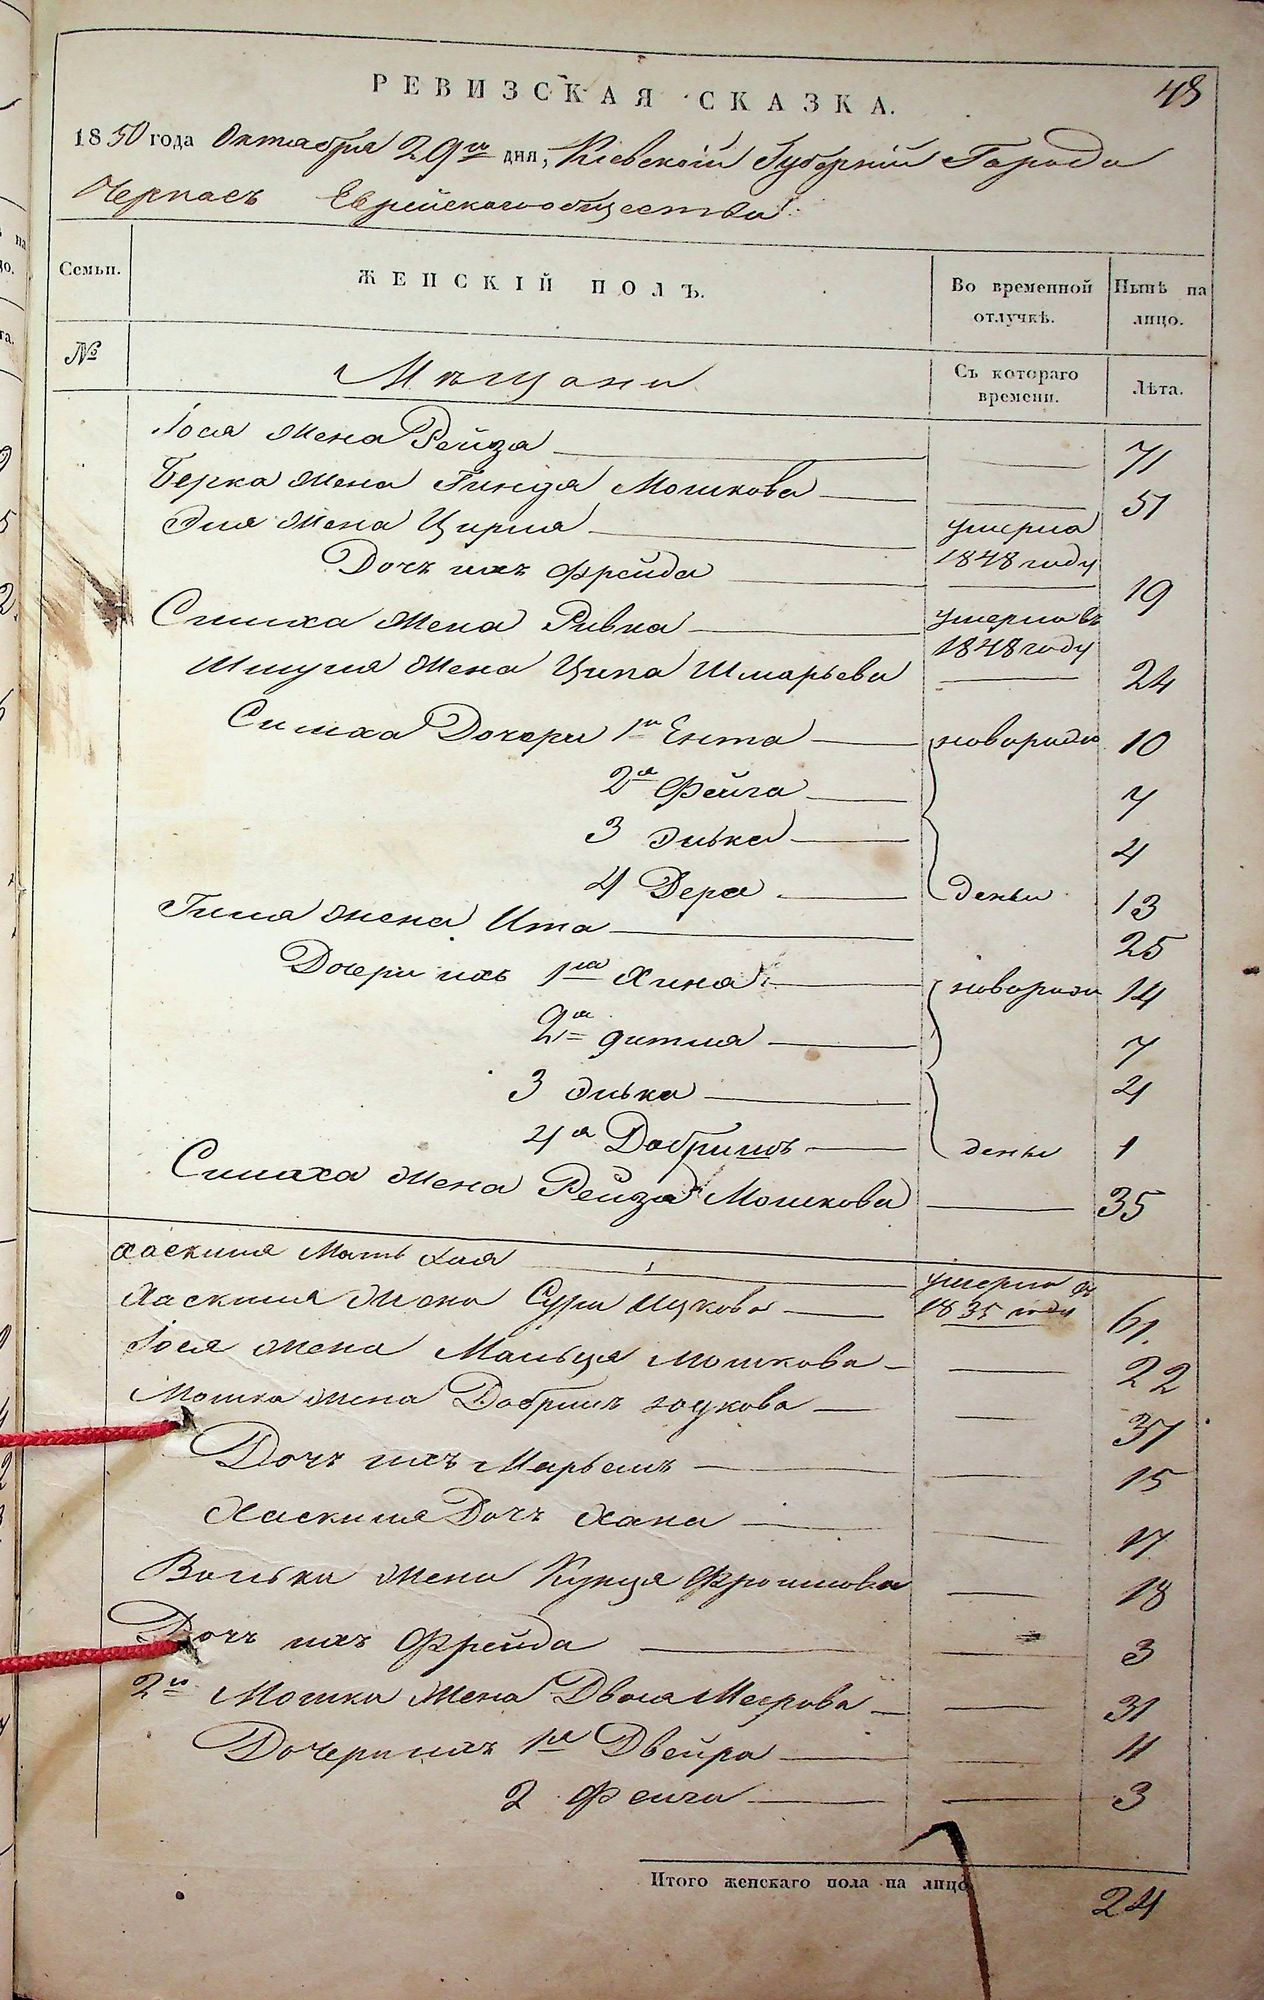 48
РЕВИЗСКАЯ СКАЗКА.
1850 года Октября 29го дня, Кіевской Губерніи Города
Черкасъ Еврейскаго общества
Семьи. ЖЕНСКІЙ ПОЛЪ. Во временной отлучкѣ. Нынѣ на лицо.
№ Мѣщане Съ котораго времени. Лѣта.
Іося жена Рейза 71
Берка жена Гинда Мошкова 51
Эля жена Цирля умерла 1848 году
Дочь ихъ Фрейда 19
Симха жена Ривка умерла въ 1848 году
Шмуля жена Ципа Шмарьева 24
Симха Дочери 1я Ента новорож 10
2я Фейга 7
3 Элька 4
4 Дера дены 13
Гиля жена Ита 25
Дочери ихъ 1я Хина новорож 14
2я 7
3 Элька 4
4я Добришъ дены 1
Симха жена Рейза Мошкова 35
Хаскиля Мать Хая умерла въ 1835 году
Хаскиля жена Сура Ицкова 61.
Іося жена Мальця Мошкова 22
Мошка жена Добришъ Іоцкова 37
Дочь ихъ Марьемъ 15
Хаскиля Дочь Хана 17
Волька жена Кунця Фроимова 18
Дочь ихъ Фрейда 3
2й Мошка жена Двося Меерова 31
Дочери ихъ 1я Двейра 11
2 Фейга 3
Итого женскаго пола на лицо 24